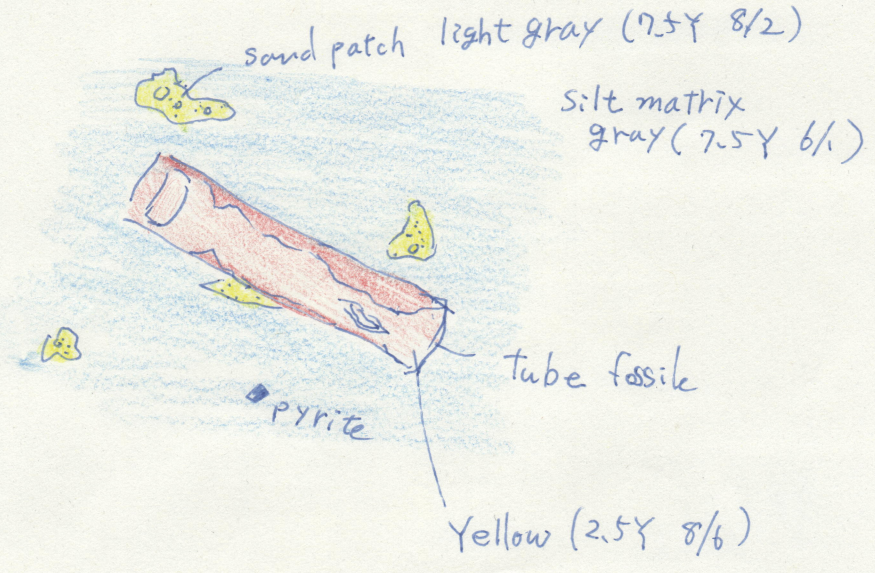 sand patch light gray (7.5Y 8/2)
silt matrix
gray (7.5Y 6/1)
tube fossile
pyrite
Yellow (2.5Y 8/6)